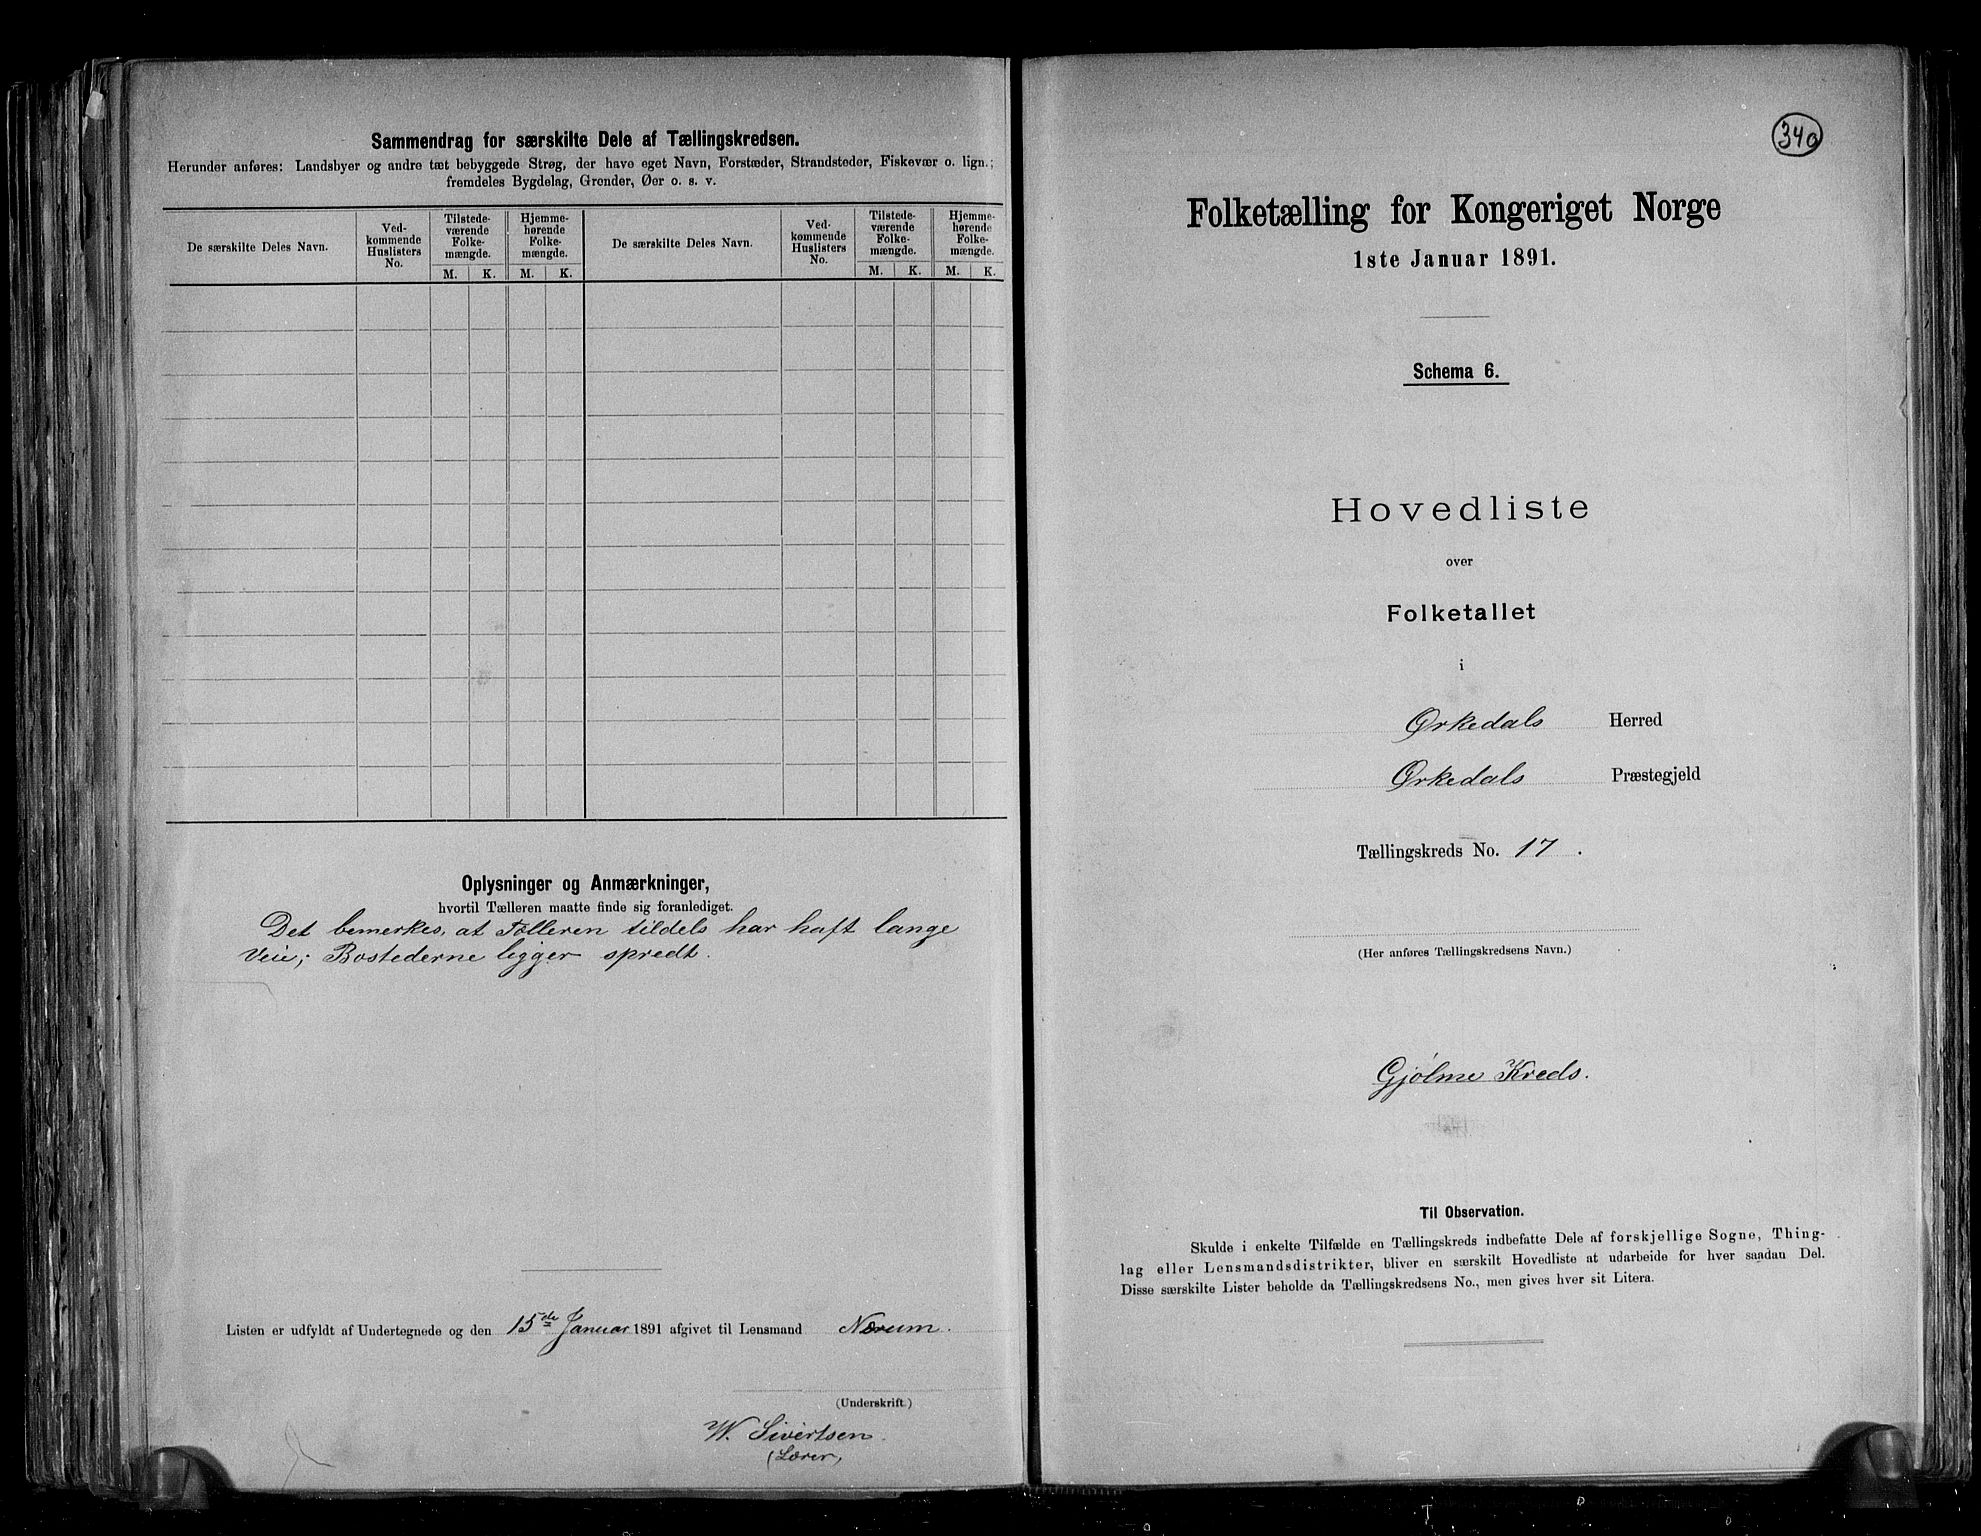 Sammendrag for særskilte Dele af Tællingskredsen.
Herunder anføres: Landsbyer og andre tæt bebyggede Strøg, der have eget Navn, Forstæder, Strandsteder, Fiskevær o. lign.;
fremdeles Bygdelag, Grender, Øer o. s. v.
De særskilte Deles Navn.
Ved-
kommende
Huslisters
No.
Tilstede-
værende
Folke-
mængde.
M. K.
Hjemme-
hørende
Folke-
mængde.
M. K.
De særskilte Deles Navn.
Ved-
kommende
Huslisters
No.
Tilstede-
værende
Folke-
mængde.
M. K.
Hjemme-
hørende
Folke-
mængde.
M. K.
Oplysninger og Anmærkninger,
hvortil Tælleren maatte finde sig foranlediget.
Det bemerkes, at Tælleren tildels har haft lange
Veie; Bostederne ligger spredt.
Listen er udfyldt af Undertegnede og den 15de Januar 1891 afgivet til Lensmand Nærum.
(Underskrift.)
W. Sivertsen.
(Lærer)
340
Folketælling for Kongeriget Norge
1ste Januar 1891.
Schema 6.
Hovedliste
over
Folketallet
i
Ørkedals Herred
Ørkedals Præstegjeld
Tællingskreds No. 17.
(Her anføres Tællingskredsens Navn.)
Gjølme Kreds.
Til Observation.
Skulde i enkelte Tilfælde en Tællingskreds indbefatte Dele af forskjellige Sogne, Thing-
lag eller Lensmandsdistrikter, bliver en særskilt Hovedliste at udarbeide for hver saadan Del.
Disse særskilte Lister beholde da Tællingskredsens No., men gives hver sit Litera.